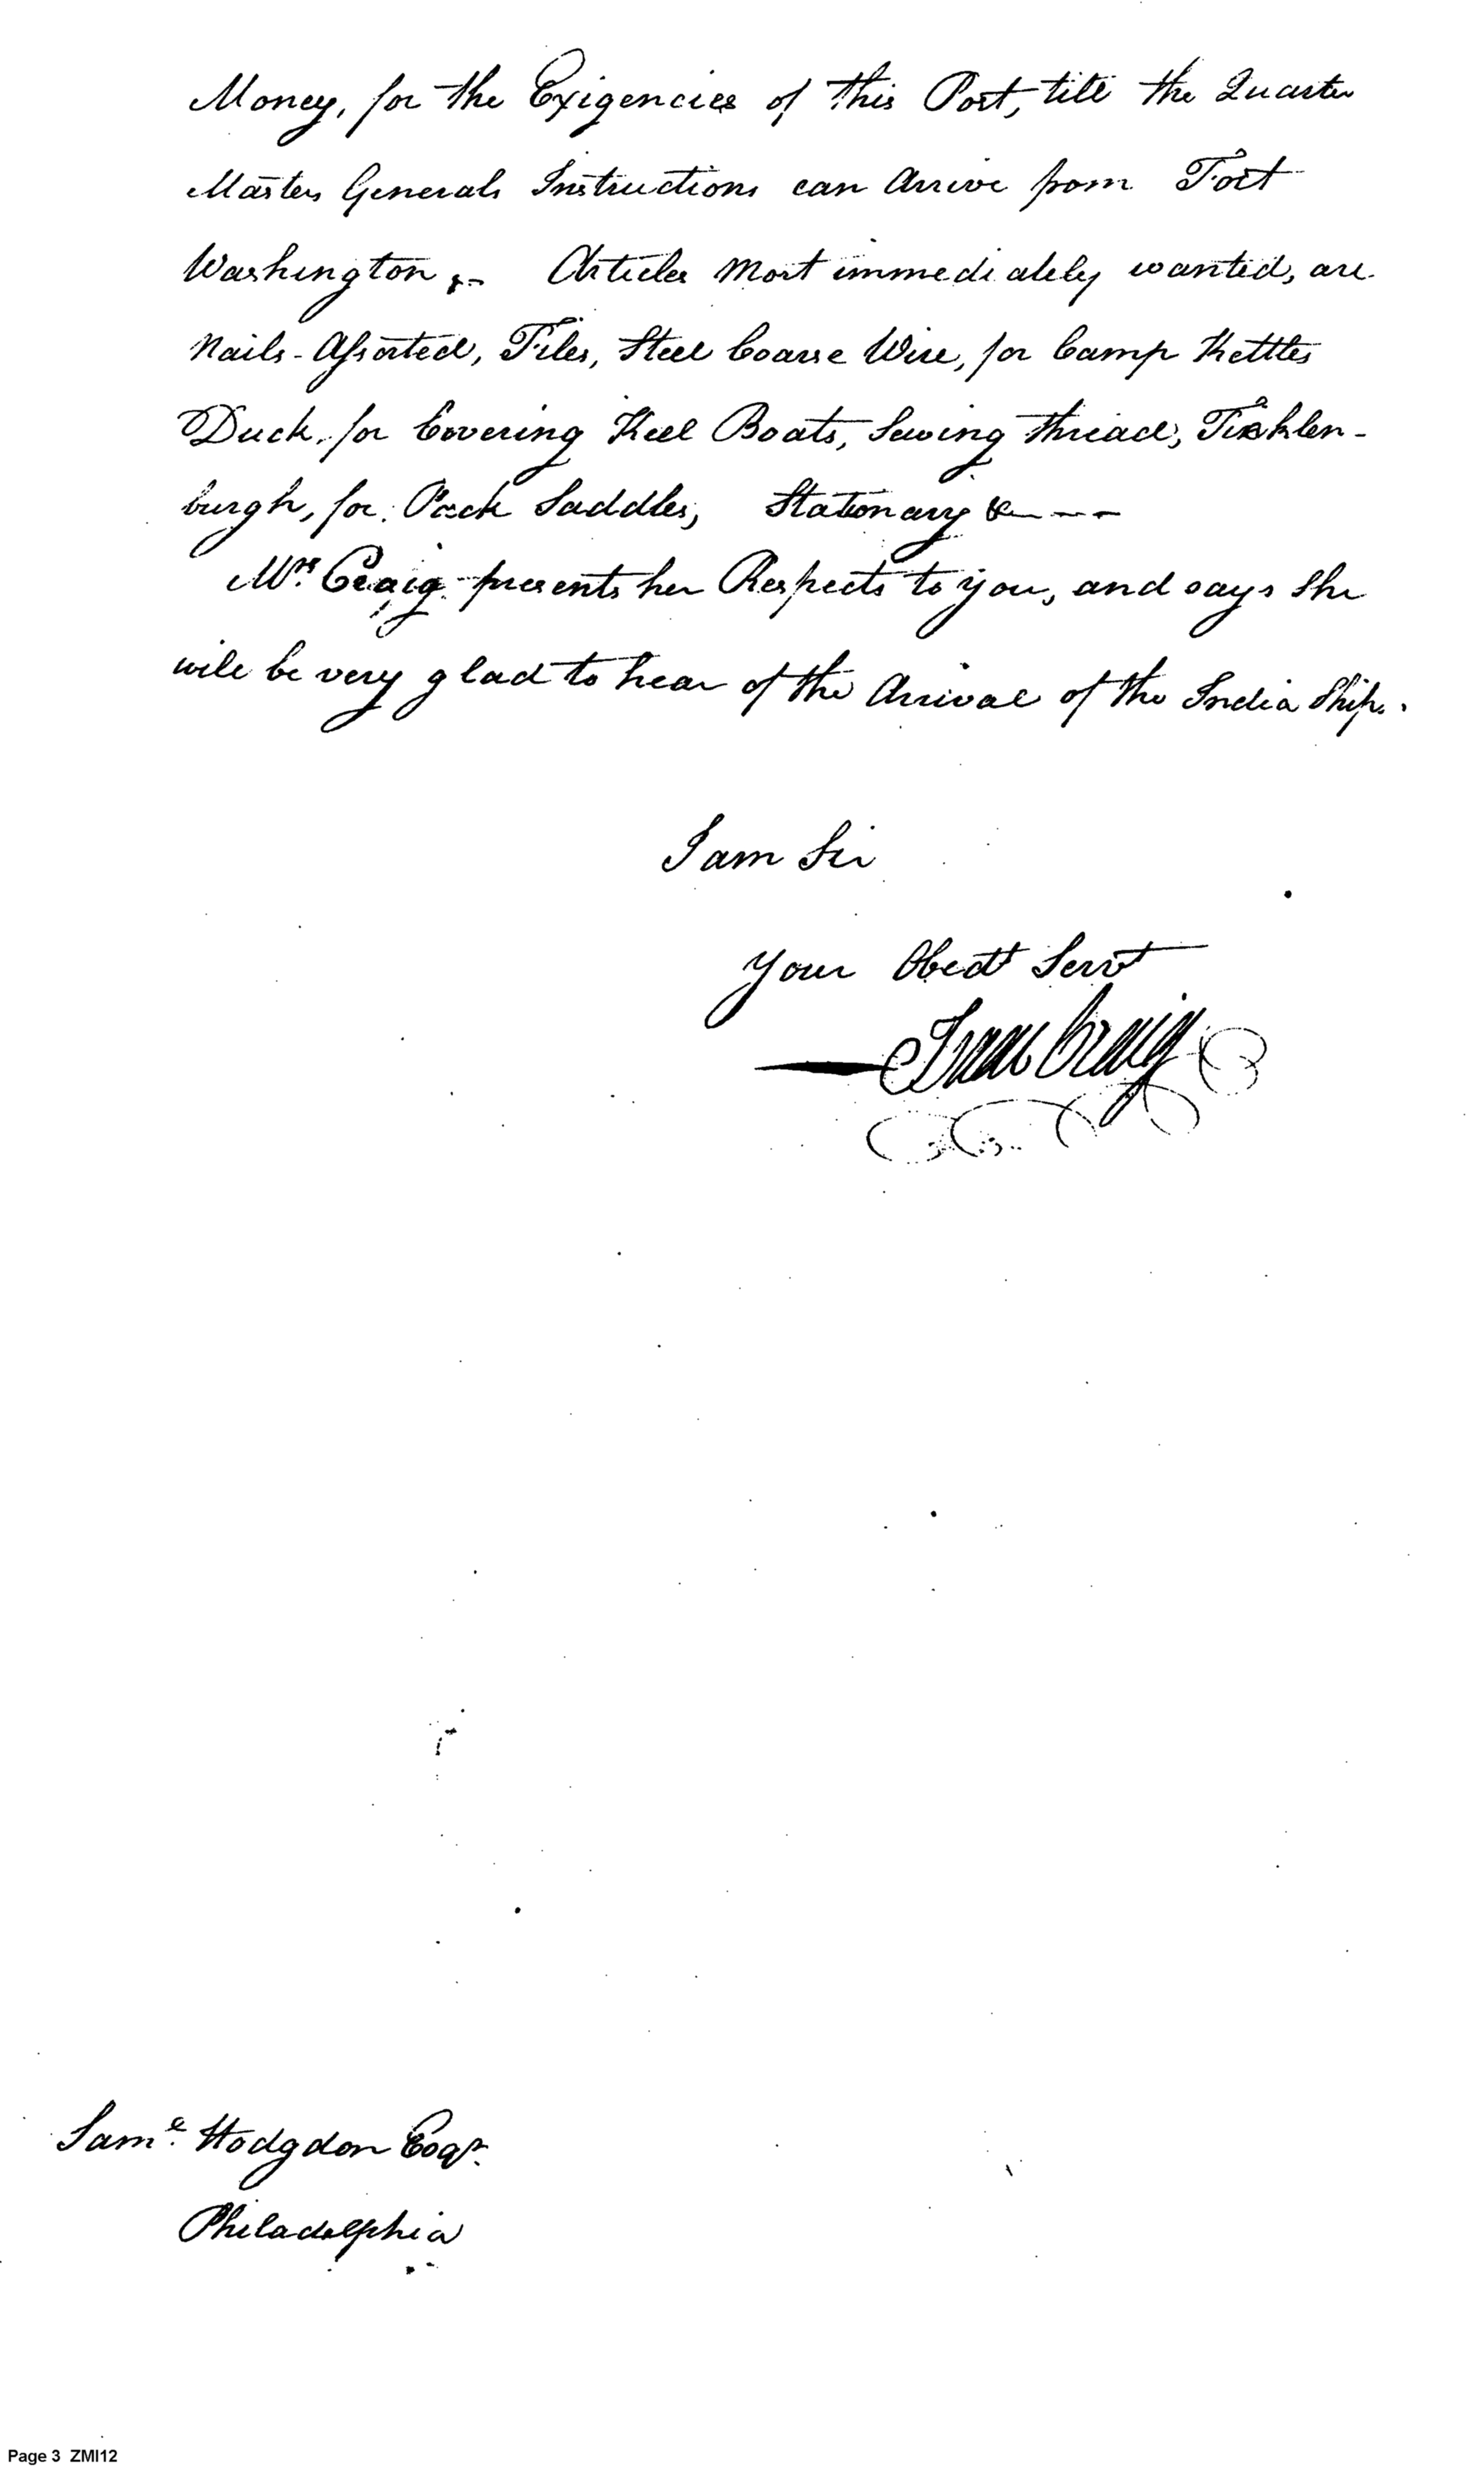 Money, for the Exigencies of this Post, till the Quarter
Masters Generals Instructions can Arrive from Fort
Washington,- Articles Most immediately wanted, are
Nails-Assorted, Files, Steel Coarse Wire, for Camp Kettles
Duck, for Covering Keel Boats, Sewing thread, Ticklen-
burgh, for Pack Saddles, Stationary &---
Mrs. Craig presents her Respects to you, and says She
will be very glad to hear of the Arrival of the India Ship.
I am Sir
Your Obedt Servt
Isaac Craig
Saml. Hodgdon Esqr.
Philadelphia
Page 3 ZMI12